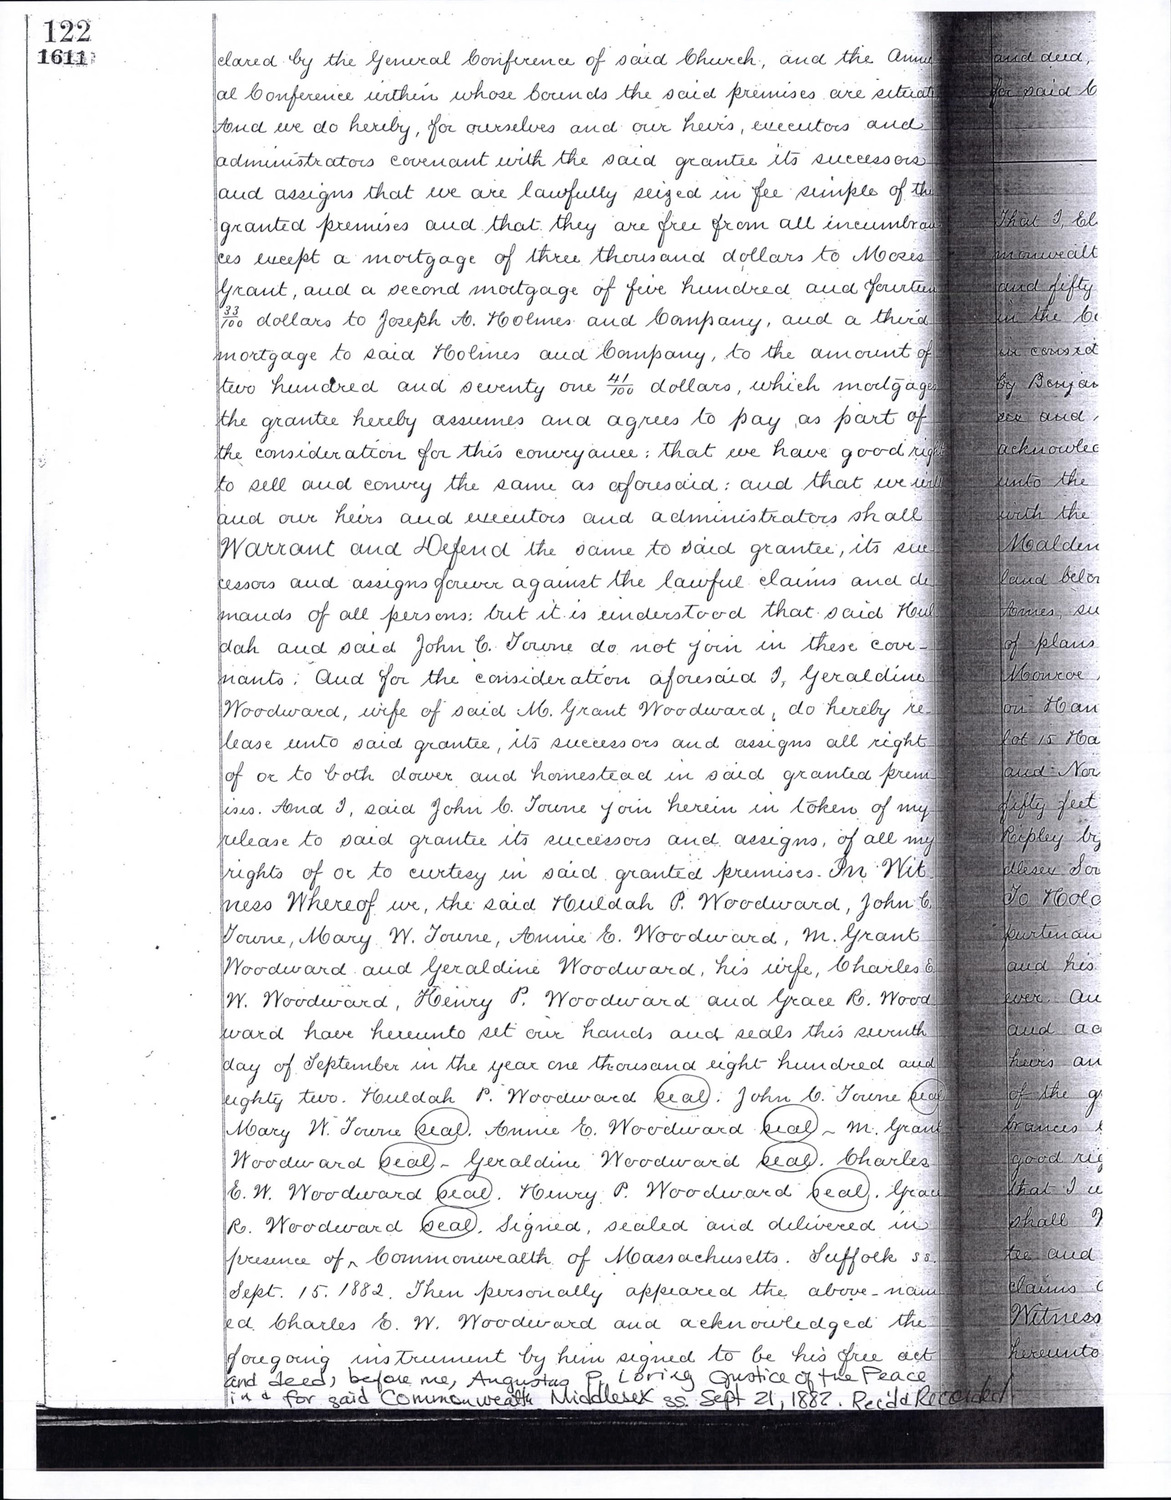 122
1611
clared by the General Conference of said Church, and the Annu
al Conference within whose bounds the said premises are situat
And we do hereby, for ourselves and our heirs, executors and
administrators covenant with the said grantee its successors
and assigns that we are lawfully seized in fee simple of the
granted premises and that they are free from all incumbran
ces except a mortgage of three thousand dollars to Moses
Grant, and a second mortgage of five hundred and fourteen
33/100 dollars to Joseph A. Holmes and Company, and a third
mortgage to said Holmes and Company, to the amount of
two hundred and seventy one 41/100 dollars, which mortgage
the grantee hereby assumes and agrees to pay as part of
the consideration for this conveyance: that we have good righ
to sell and convey the same as aforesaid: and that we will
and our heirs and executors and administrators shall
Warrant and Defend the same to said grantee, its suc
cessors and assigns forever against the lawful claims and de
mands of all persons: but it is understood that said Hul
dah and said John C. Towne do not join in these cove-
nants. And for the consideration aforesaid I, Geraldine
Woodward, wife of said M. Grant Woodward, do hereby re-
lease unto said grantee, its successors and assigns all right
of or to both dower and homestead in said granted prem
ises. And I, said John C. Towne join herein in token of my
release to said grantee its successors and assigns, of all my
rights of or to curtesy in said granted premises. In Wit
ness Whereof we, the said Huldah P. Woodward, John C.
Towne, Mary W. Towne, Annie E. Woodward, M. Grant
Woodward and Geraldine Woodward, his wife, Charles E.
W. Woodward, Henry P. Woodward and Grace R. Wood
ward have hereunto set our hands and seals this seventh
day of September in the year one thousand eight hundred and
eighty two. Huldah P. Woodward seal. John C. Towne seal
Mary W. Towne seal. Annie E. Woodward seal ~ M. Grant
Woodward seal ~ Geraldine Woodward seal. Charles
E. W. Woodward seal. Henry P. Woodward seal. Grace
R. Woodward seal. Signed, sealed and delivered in
presence of ~ Commonwealth of Massachusetts. Suffolk ss.
Sept. 15. 1882. Then personally appeared the above-nam
ed Charles E. W. Woodward and acknowledged the
foregoing instrument by him signed to be his free act
and deed, before me, Augustus P. Loring Justice of the Peace
in & for said Commonwealth Middlesex ss. Sept 21, 1882. Rec'd & Recorded
and deed,
for said C
That I, El
monwealt
and fifty
in the Co
in consid
by Benjam
see and
acknowled
unto the
with the
Malden
land belon
Ames, su
of plans
Monroe
on Han
lot 15 Ha
and Nor
fifty feet
Ripley by
dlesex Sou
To Hold
purtenan
and his
ever. An
and ac
heirs an
of the g
brances
good rig
that I w
shall W
tee and
claims
Witness
hereunto